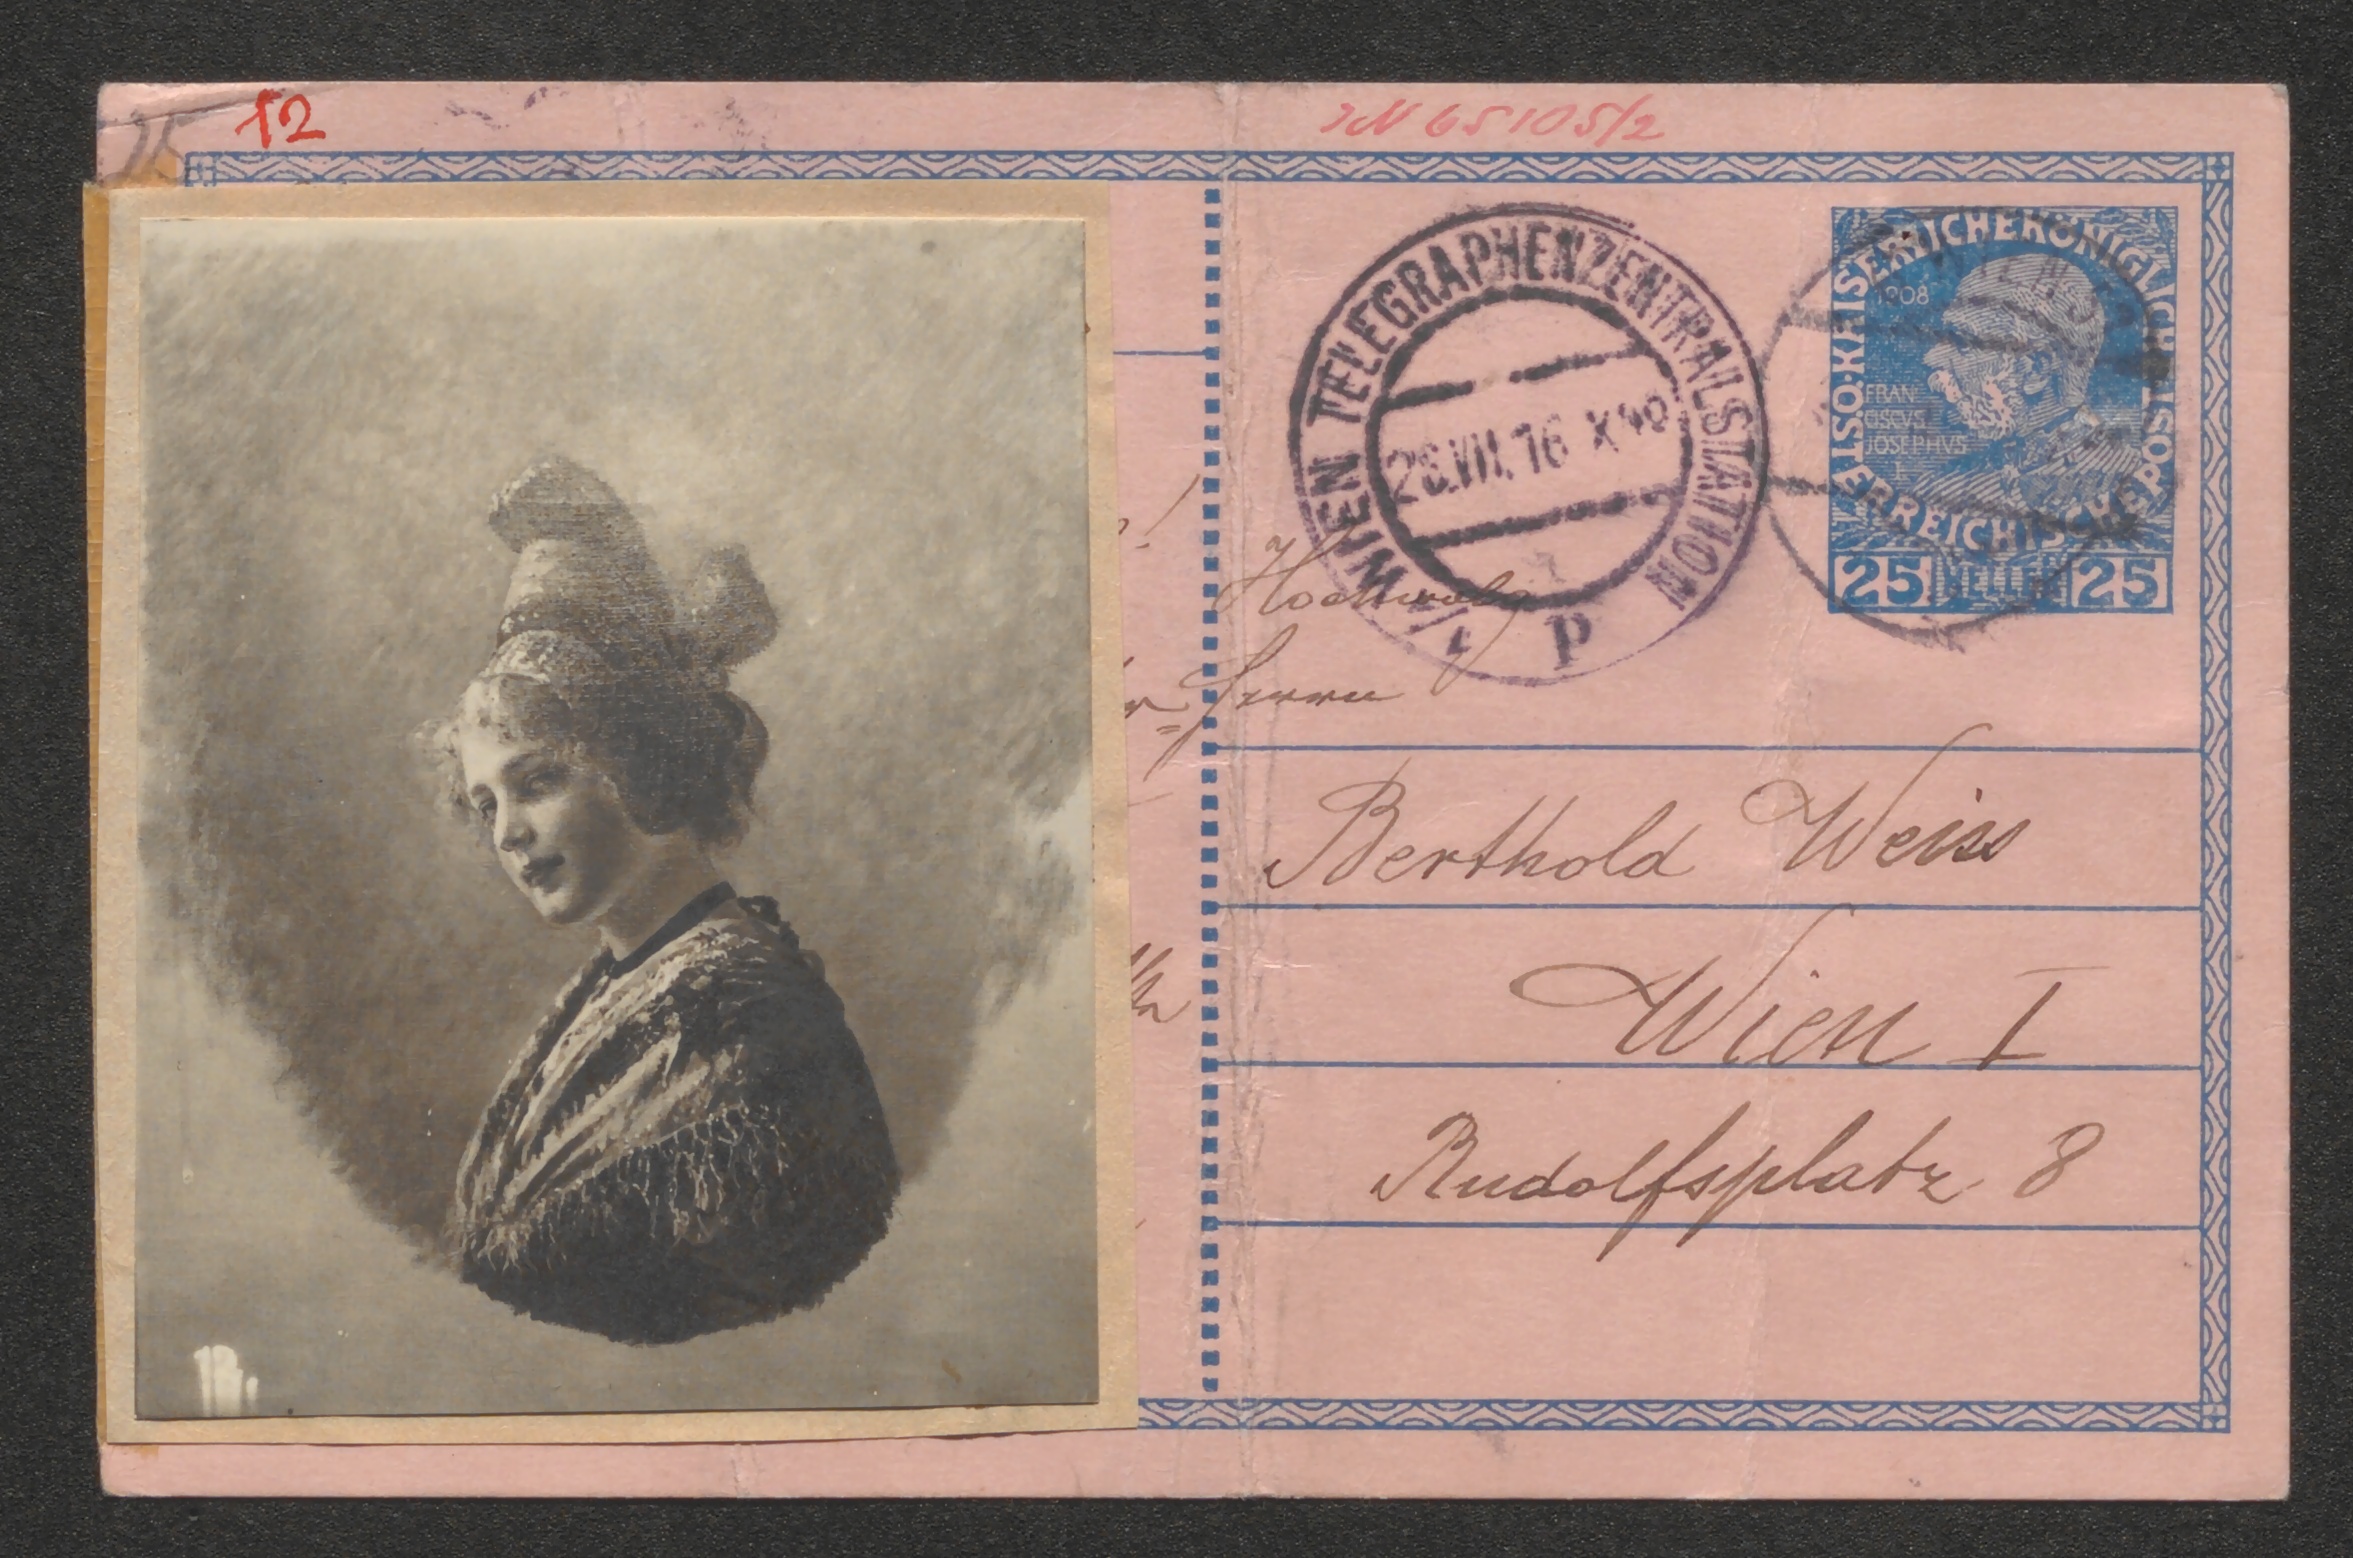 12
JN 65105/2
1/1 WIEN TELEGRAPHENZENTRALSTATION
28.VII.16 X 40
P
KAISERLICHEKÖNIGLICHE
ÖSTERREICHISCHE POST
1908
FRAN
CISCVS
JOSEPHVS
I
25 HELLER 25
Hochwolg
Herrn
Berthold Weiss
Wien I
Rudolfsplatz 8